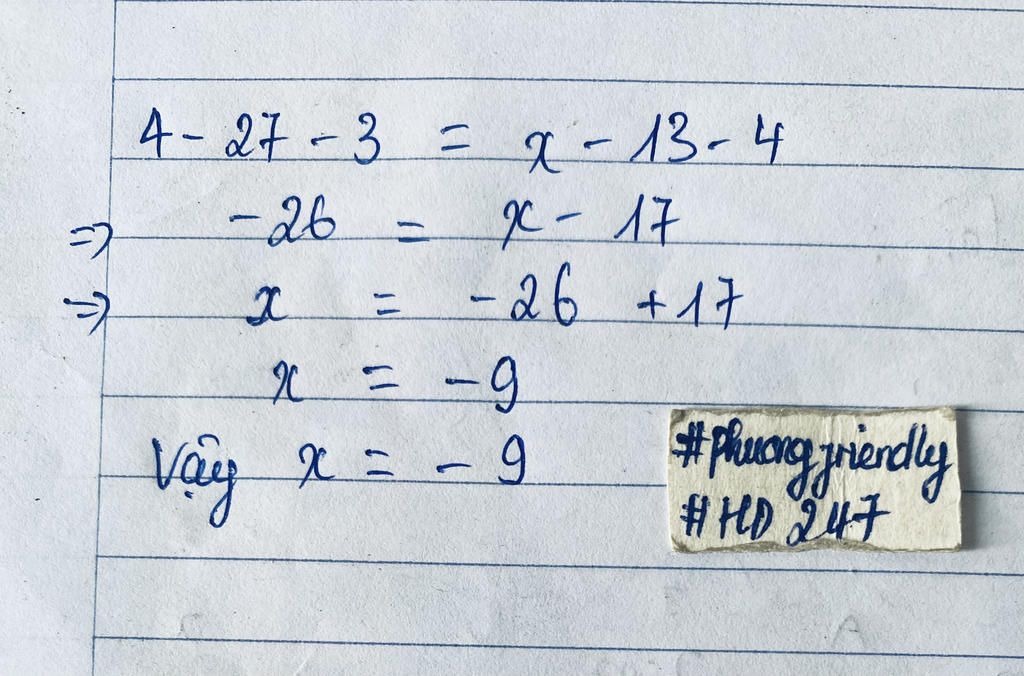 4 - 27 - 3 = x - 13 - 4
=> -26 = x - 17
=> x = -26 + 17
x = -9
Vậy x = -9
#phuongfriendly
#HD 247